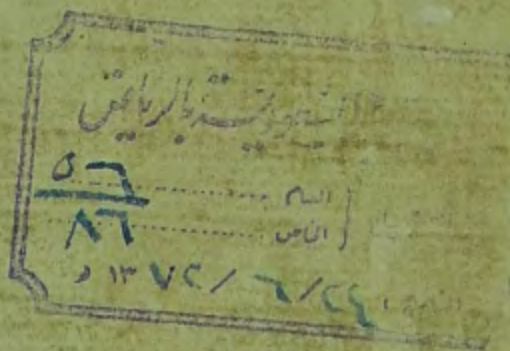 السعودية بالرياض
العام .......... ٥٦
الخاص .......... ٨٦
التاريخ : ٢٤ / ٦ / ١٣٧٢ هـ